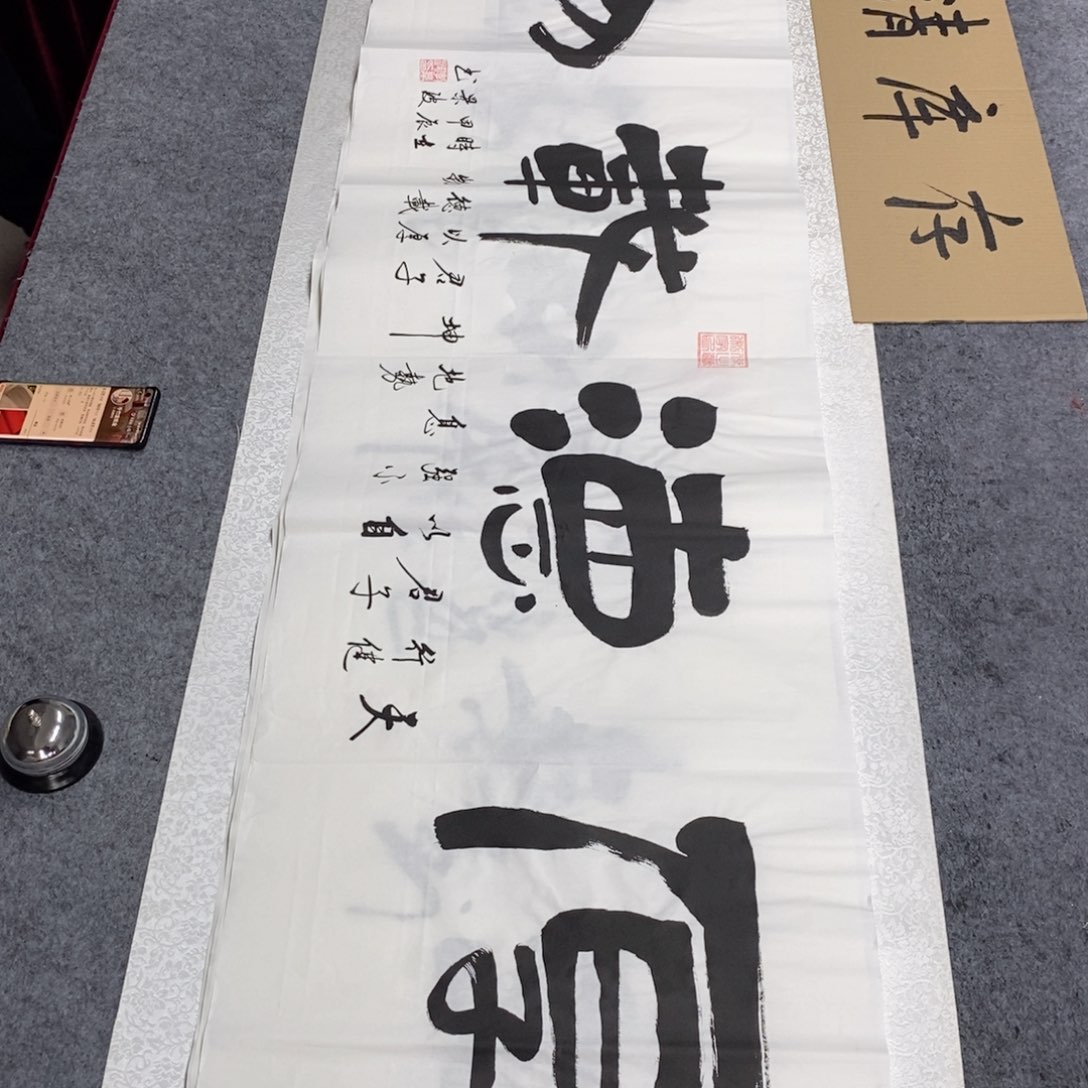 厚德載物
天
行健
君子
以自
强不
息
地勢
坤
君子
以厚
德載
物
時在
甲辰
书
清库存